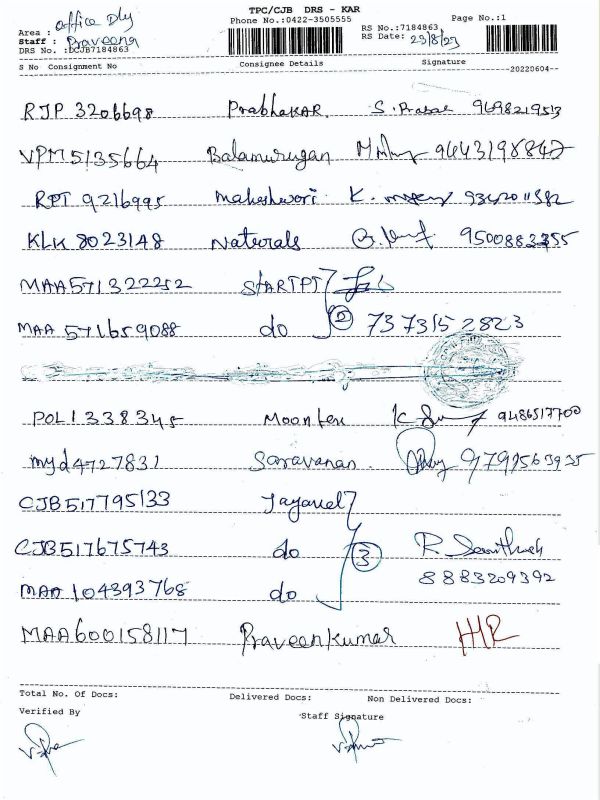 TPC/CJB DRS - KAR
Phone No.:0422-3505555
Page No.:1
Area : office Dly
Staff : Praveena
DRS No. :DCJB7184863
RS No.:7184863
RS Date: 23/8/23
S No Consignment No Consignee Details Signature
20220604
RJP 3206698 PrabhakAR. 9698219513
VPM 5135664 Balamurugan 9443198842
RPT 9216995 maheshwori K. 9362011582
KLK 8023148 Naturals 9500883355
MAA571322252 StARTPT
MAA 571659088 do 2 7373152822
POL1338345 Moon 9486517700
myd4727831 Saravanan. 9799563935
CJB517795133 Jayavel
CJB517675743 do 3 R.
MAA 104393768 do 8883209392
MAA600158117 Praveenkumar HR
Total No. Of Docs: Delivered Docs: Non Delivered Docs:
Verified By Staff Signature